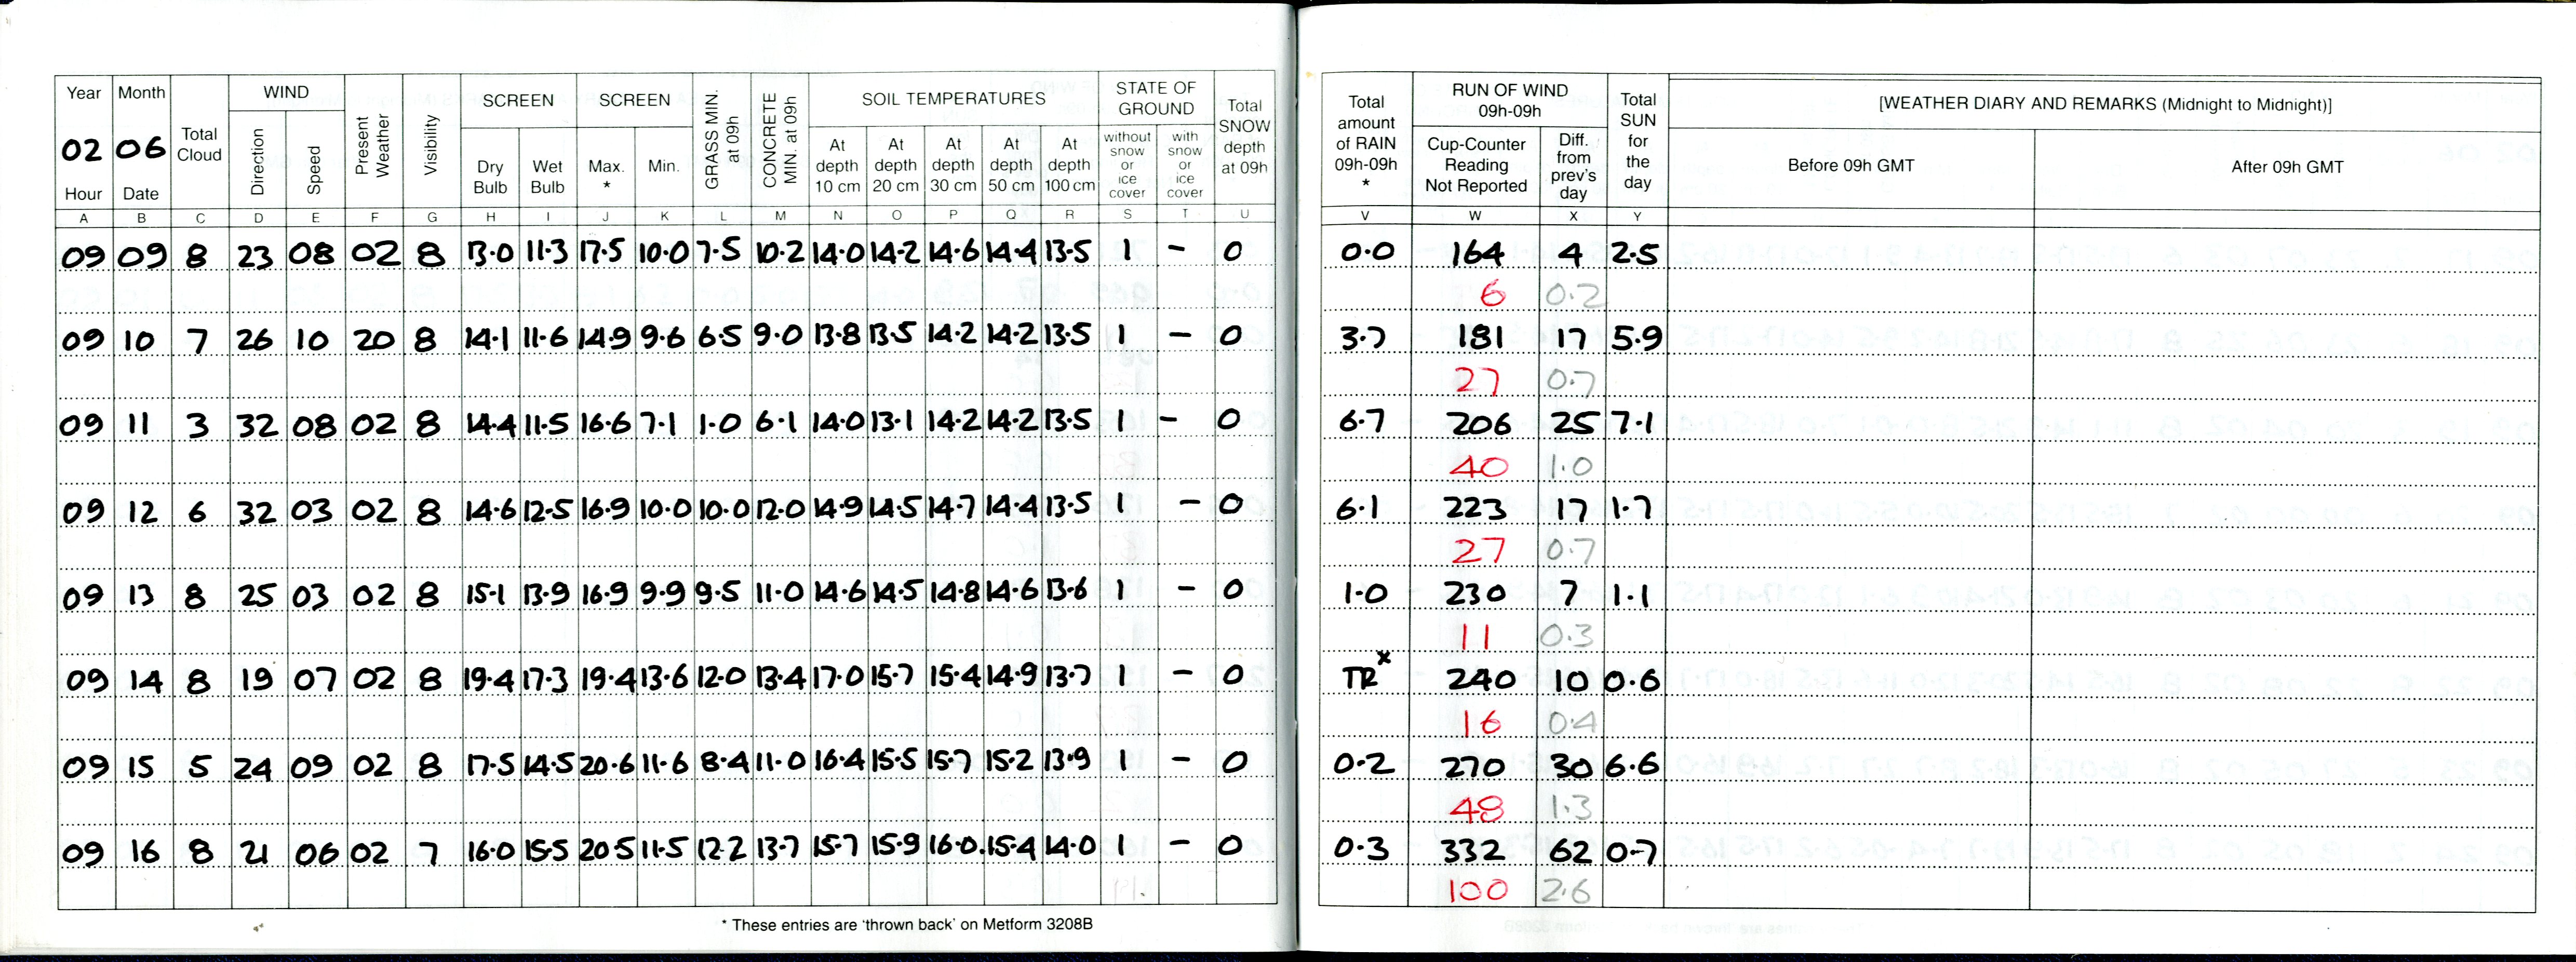 Year Month Total Cloud WIND Present Weather Visibility SCREEN SCREEN GRASS MIN. at 09h CONCRETE MIN. at 09h SOIL TEMPERATURES STATE OF GROUND Total SNOW depth at 09h
02 06 Direction Speed Dry Bulb Wet Bulb Max. * Min. At depth 10 cm At depth 20 cm At depth 30 cm At depth 50 cm At depth 100 cm without snow or ice cover with snow or ice cover
Hour Date
A B C D E F G H I J K L M N O P Q R S T U
09 09 8 23 08 02 8 13.0 11.3 17.5 10.0 7.5 10.2 14.0 14.2 14.6 14.4 13.5 1 - 0
09 10 7 26 10 20 8 14.1 11.6 14.9 9.6 6.5 9.0 13.8 13.5 14.2 14.2 13.5 1 - 0
09 11 3 32 08 02 8 14.4 11.5 16.6 7.1 1.0 6.1 14.0 13.1 14.2 14.2 13.5 1 - 0
09 12 6 32 03 02 8 14.6 12.5 16.9 10.0 10.0 12.0 14.9 14.5 14.7 14.4 13.5 1 - 0
09 13 8 25 03 02 8 15.1 13.9 16.9 9.9 9.5 11.0 14.6 14.5 14.8 14.6 13.6 1 - 0
09 14 8 19 07 02 8 19.4 17.3 19.4 13.6 12.0 13.4 17.0 15.7 15.4 14.9 13.7 1 - 0
09 15 5 24 09 02 8 17.5 14.5 20.6 11.6 8.4 11.0 16.4 15.5 15.7 15.2 13.9 1 - 0
09 16 8 21 06 02 7 16.0 15.5 20.5 11.5 12.2 13.7 15.7 15.9 16.0 15.4 14.0 1 - 0
* These entries are 'thrown back' on Metform 3208B
Total amount of RAIN 09h-09h * RUN OF WIND 09h-09h Total SUN for the day [WEATHER DIARY AND REMARKS (Midnight to Midnight)]
Cup-Counter Reading Not Reported Diff. from prev's day Before 09h GMT After 09h GMT
V W X Y
0.0 164 4 2.5
6 0.2
3.7 181 17 5.9
27 0.7
6.7 206 25 7.1
40 1.0
6.1 223 17 1.7
27 0.7
1.0 230 7 1.1
11 0.3
TR x 240 10 0.6
16 0.4
0.2 270 30 6.6
48 1.3
0.3 332 62 0.7
100 2.6